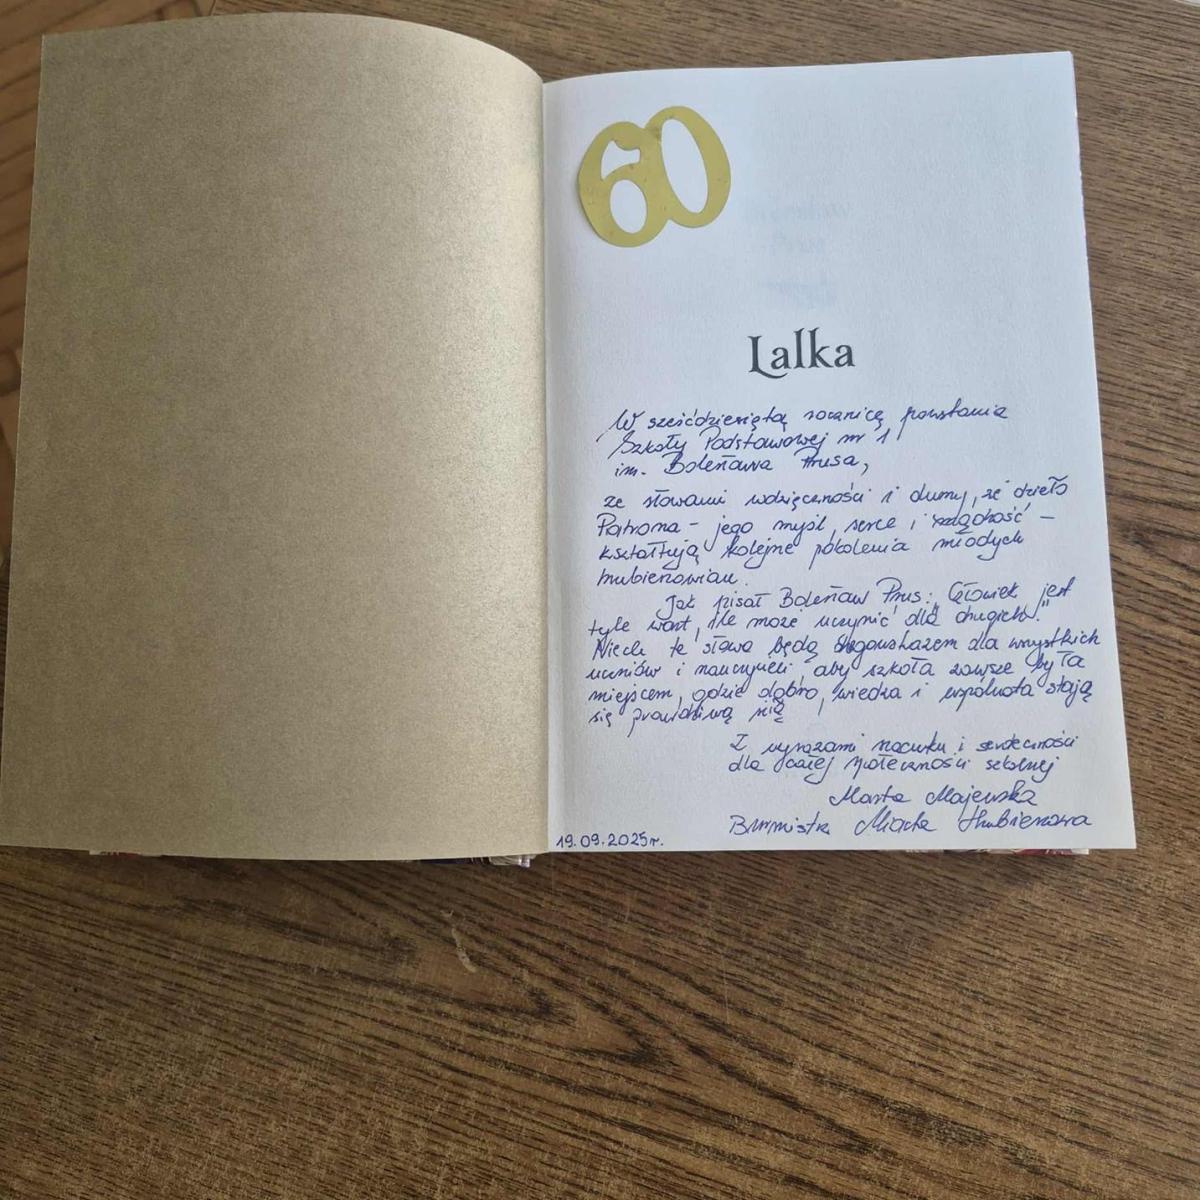 60
Lalka
W sześćdziesiątą rocznicę powstania
Szkoły Podstawowej nr 1
im. Bolesława Prusa,
ze słowami wdzięczności i dumy, że dzieło
Patrona - jego myśl, serce i mądrość -
kształtują kolejne pokolenia młodych
hrubieszowian.
Jak pisał Bolesław Prus: „Człowiek jest
tyle wart, ile może uczynić dla drugich."
Niech te słowa będą drogowskazem dla wszystkich
uczniów i nauczycieli, aby szkoła zawsze była
miejscem, gdzie dobro, wiedza i wspólnota stają
się prawdziwą siłą
Z wyrazami szacunku i serdeczności
dla całej społeczności szkolnej
Marta Majewska
Burmistrz Miasta Hrubieszowa
19.09.2025r.